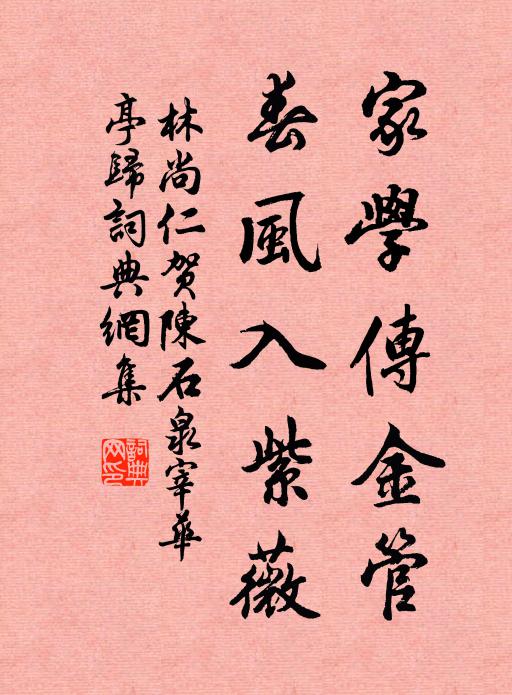 家學傳金管
春風入紫薇
林尚仁賀陳石泉宰華
亭歸詞典網集
詞典
网印